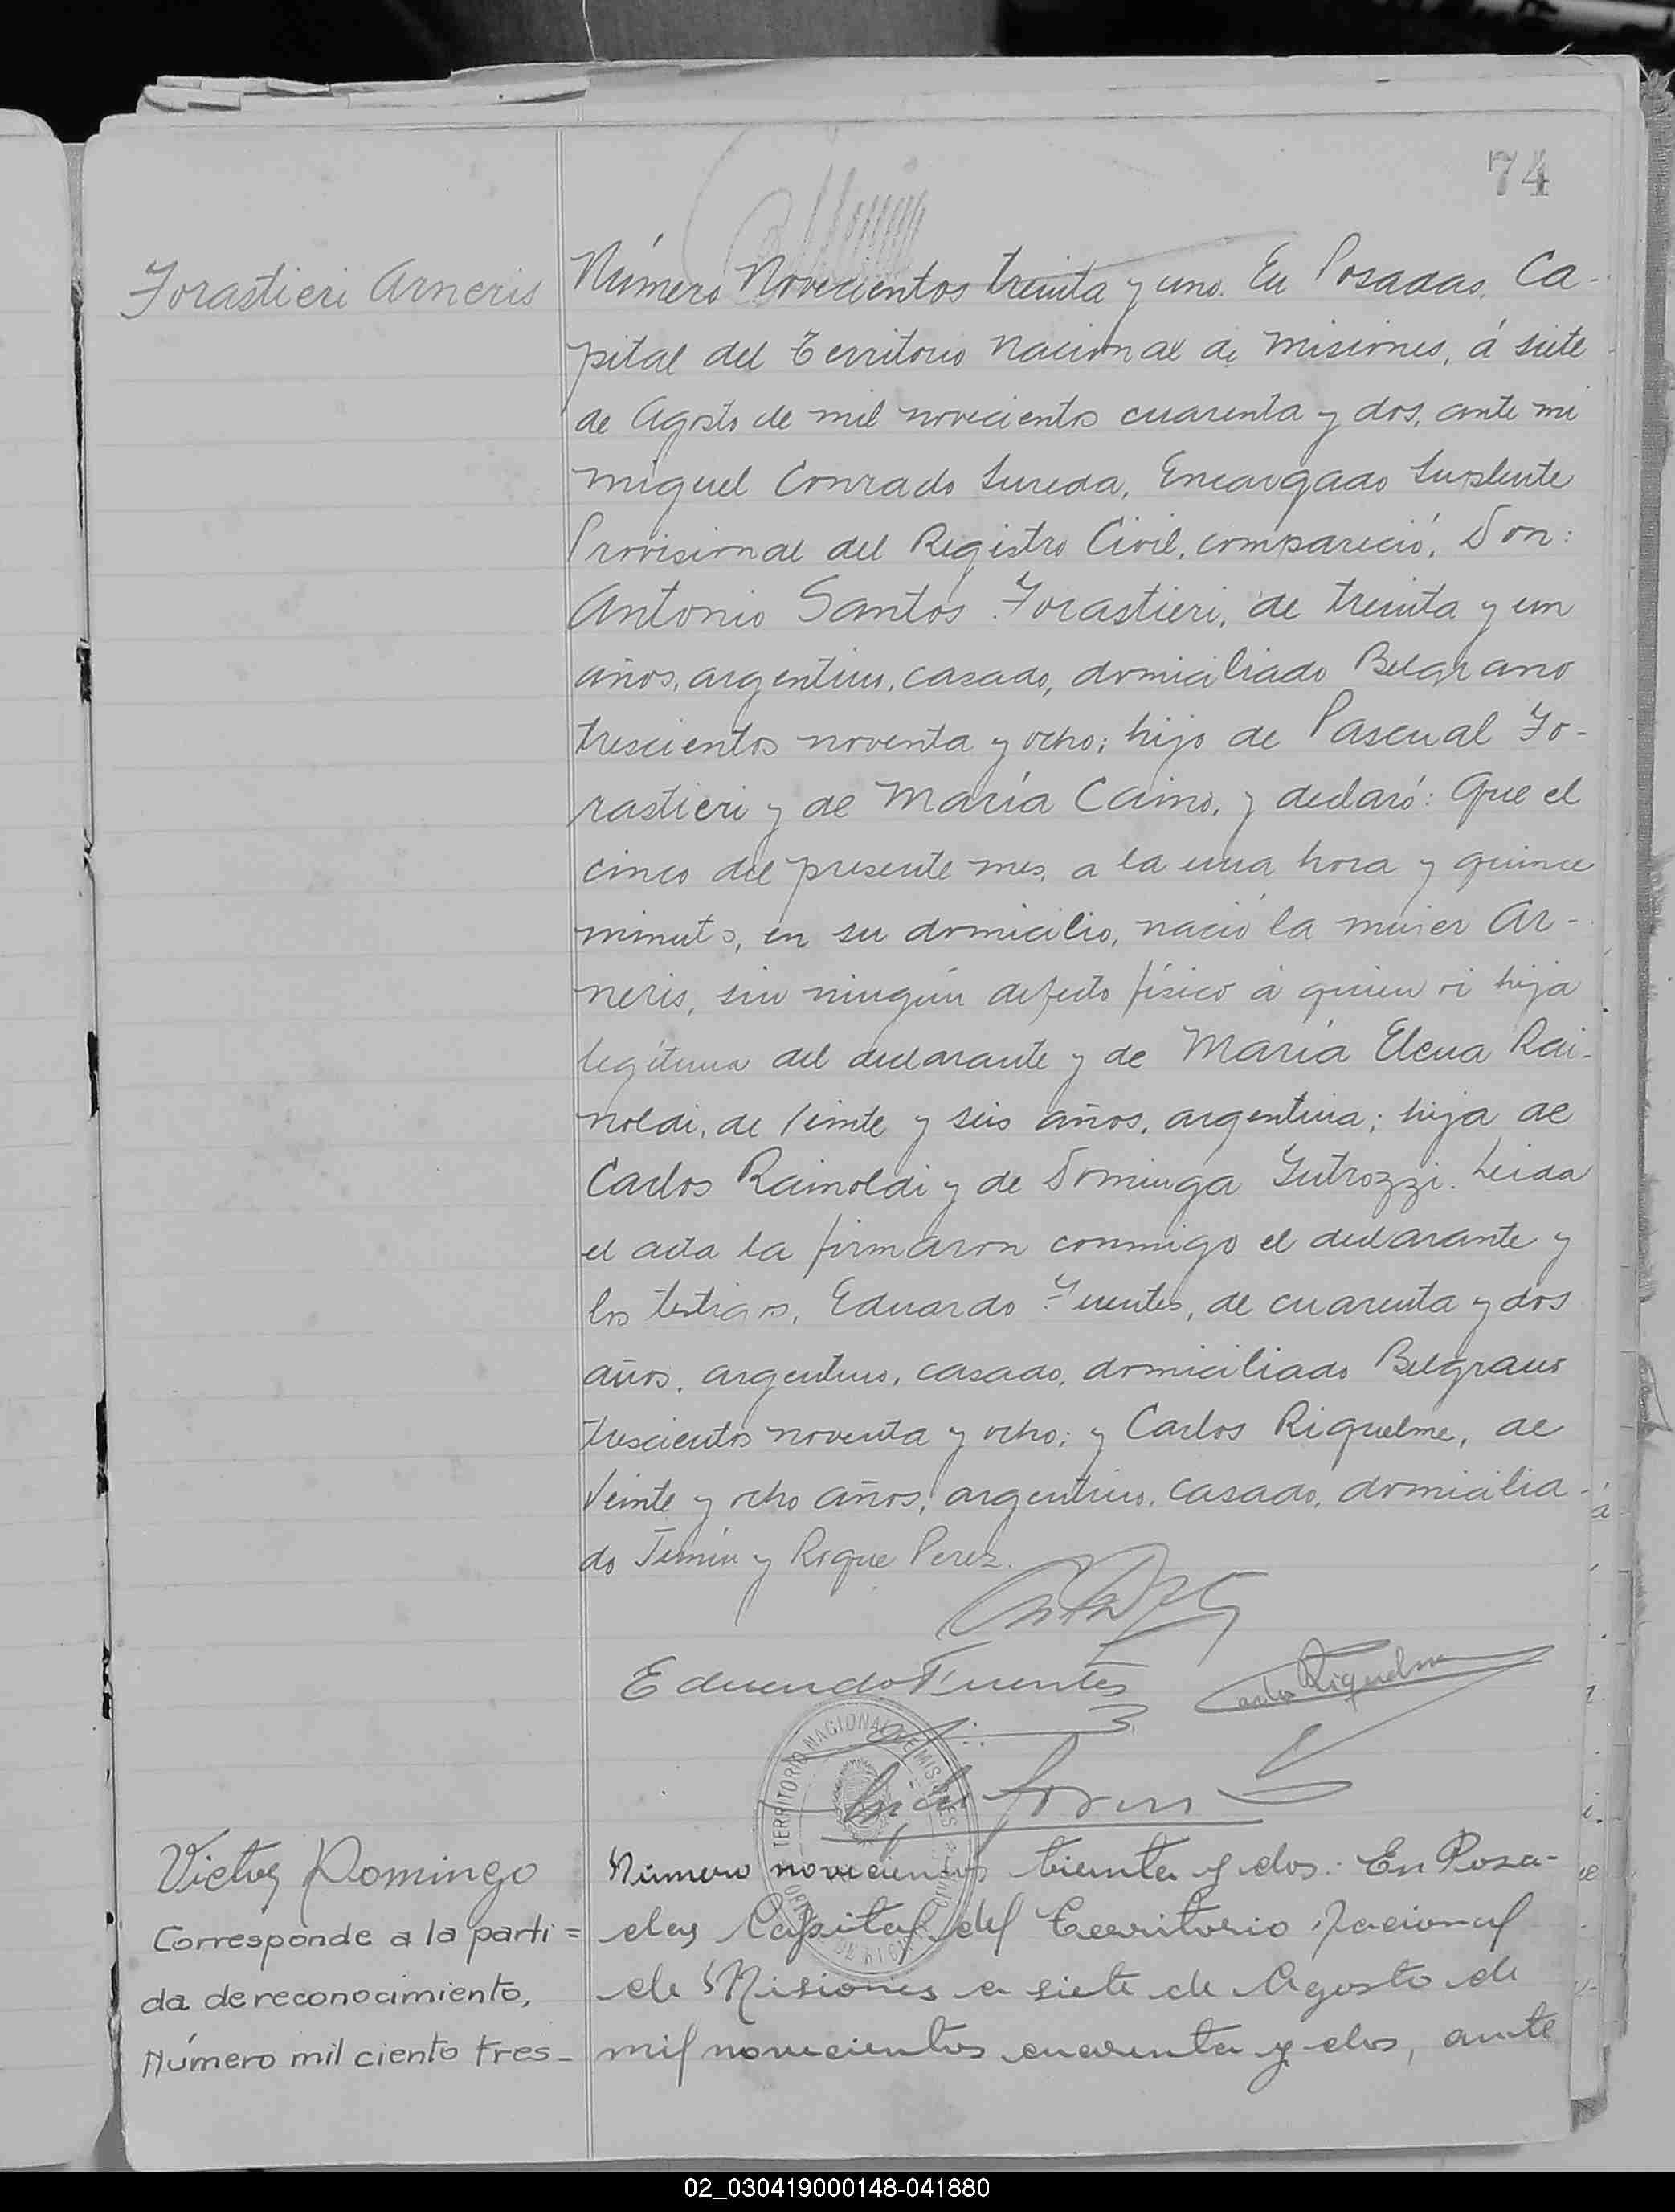 74
Forastieri Arneris
Número Novecientos treinta y uno. En Posadas, Ca-
pital del Territorio Nacional de Misiones, á siete
de Agosto de mil novecientos cuarenta y dos, ante mi
Miguel Conrado Sureda, Encargado Suplente
Provisional del Registro Civil, compareció, Don:
Antonio Santos Forastieri, de treinta y un
años, argentino, casado, domiciliado Belgrano
trescientos noventa y ocho; hijo de Pascual Fo-
rastieri y de María Caino, y declaró: Que el
cinco del presente mes, a la una hora y quince
minutos, en su domicilio, nació la mujer Ar-
neris, sin ningún defecto físico á quien vi hija
legítima del declarante y de María Elena Rai-
noldi, de veinte y seis años, argentina; hija de
Carlos Rainoldi y de Dominga Gutrozzi. Leida
el acta la firmaron conmigo el declarante y
los testigos, Eduardo Fuentes, de cuarenta y dos
años, argentino, casado, domiciliado Belgrano
trescientos noventa y ocho; y Carlos Riquelme, de
veinte y ocho años, argentino, casado, domicilia-
do Junín y Roque Perez.
Eduardo Fuentes
Carlos Riquelme
TERRITORIO NACIONAL DE MISIONES
Victor Domingo
Corresponde a la parti=
da de reconocimiento,
Número mil ciento tres-
Número novecientos treinta y dos. En Posa-
das Capital del Territorio Nacional
de Misiones a siete de Agosto de
mil novecientos cuarenta y dos, ante
02_030419000148-041880